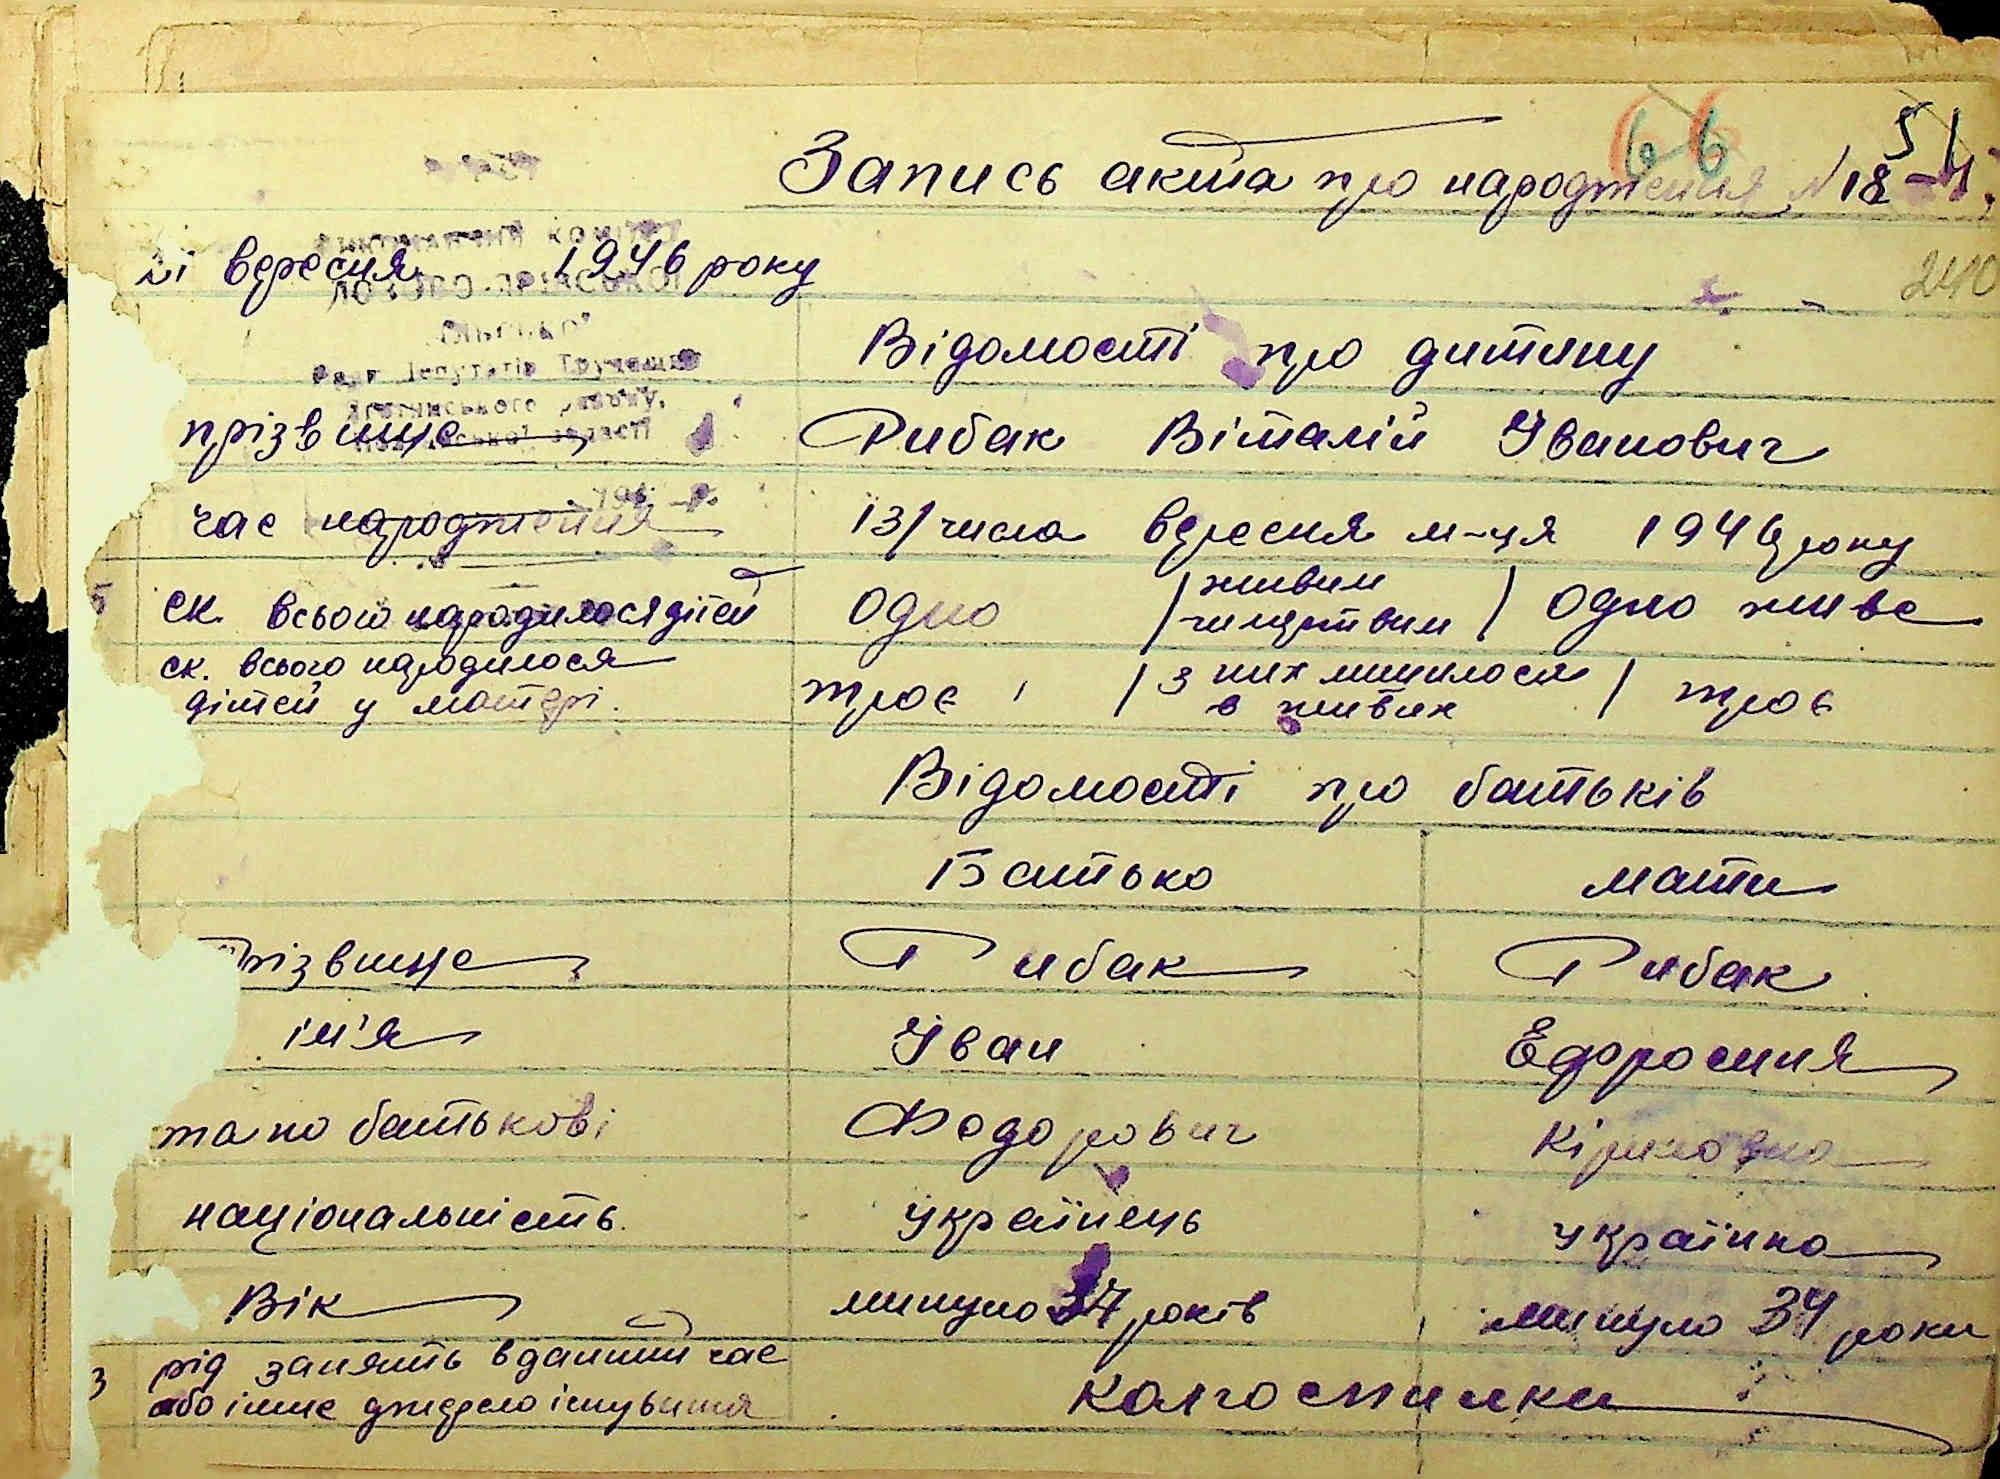 66 51
Запись акта про народження N 18
21 вересня 1946 року
240
виконавчий комітет
Ради Депутатів Трудящих
Відомості про дитину
прізвище Рибак Віталій Іванович
час народження 13/ числа вересня м-ця 1946 року
ск. всього народилося дітей одно / живим чи мертвим / одно живе
ск. всього народилося дітей у матері. троє / з них лишилося в живих / троє
Відомості про батьків
Батько мати
прізвище Рибак Рибак
ім'я Іван Ефросиня
та по батькові Федорович Кіриловна
національність Українець українка
Вік минуло 37 років минуло 34 роки
3 рід занять в даний час або інше джерело існування Колгоспники